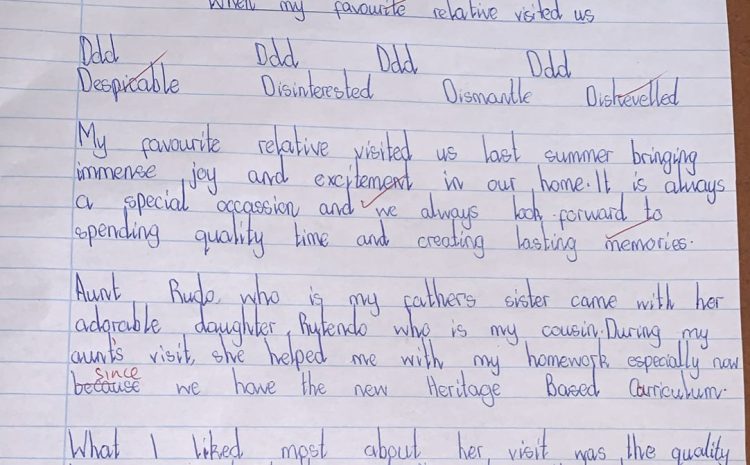 When my favourite relative visited us
Ddd Ddd Ddd Ddd
Despicable Disinterested Dismantle Dishevelled
My favourite relative visited us last summer bringing
immense joy and excitement in our home. It is always
a special occassion and we always look forward to
spending quality time and creating lasting memories.
Aunt Rudo, who is my fathers sister came with her
adorable daughter, Rutendo who is my cousin. During my
aunt's visit, she helped me with my homework especially now
since
because we have the new Heritage Based Curriculum.
What I liked most about her visit was the quality